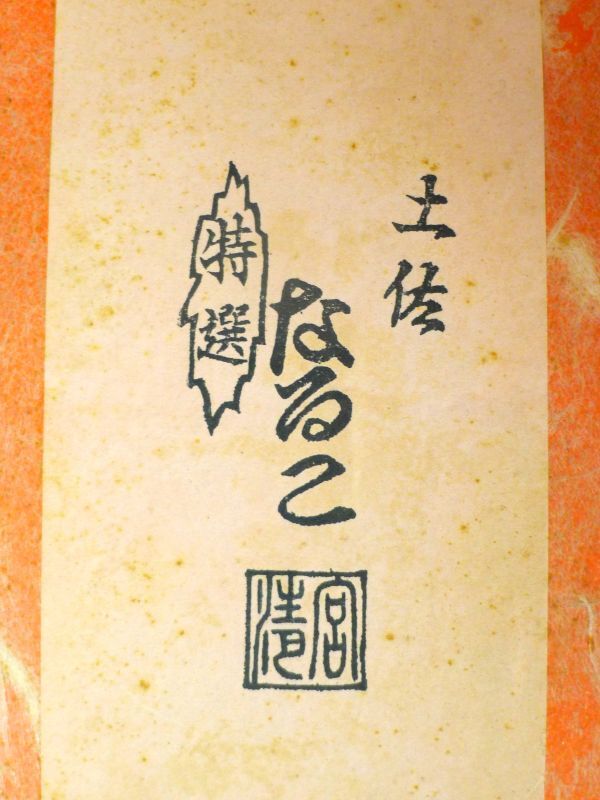 土佐
なるこ
特選
宮清